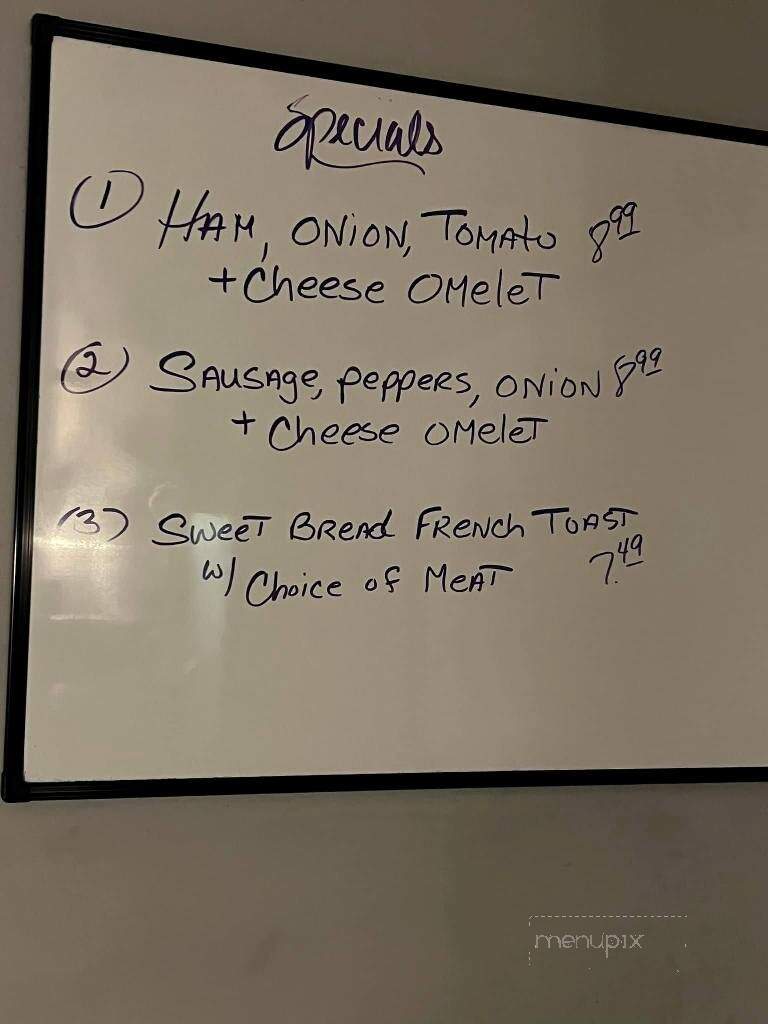 Specials
① HAM, ONION, TOMATO 8.99
+ Cheese OMeleT
② SAUSAge, peppers, ONION 8.99
+ Cheese OMeleT
(3) SweeT BReAd FReNch TOAST
w/ Choice of MeAT 7.49
menupix